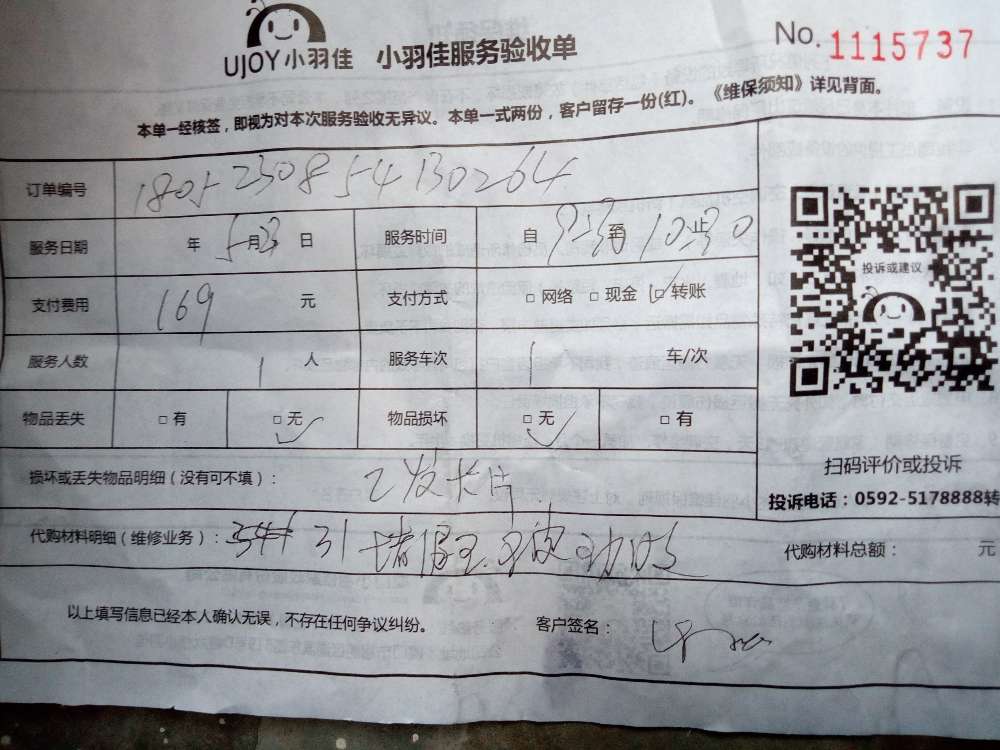 UJOY小羽佳 小羽佳服务验收单 No.1115737
本单一经核签，即视为对本次服务验收无异议。本单一式两份，客户留存一份(红)。《维保须知》详见背面。
订单编号 1805230854130264
服务日期 年 5月23日 服务时间 自 9:30 至 10:30 止
支付费用 169 元 支付方式 □ 网络 □ 现金 □ 转账
服务人数 1 人 服务车次 1 车/次
物品丢失 □ 有 □ 无 物品损坏 □ 无 □ 有
投诉或建议
损坏或丢失物品明细（没有可不填）： 已发卡片
扫码评价或投诉
投诉电话：0592-5178888转
代购材料明细（维修业务）： 代购材料总额： 元
以上填写信息已经本人确认无误，不存在任何争议纠纷。 客户签名：